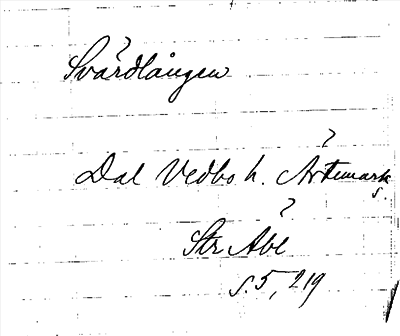 ?
Svärdlången
?
Dal Vedbo h. Ärtemark
s.
?
Str Åbl
s. 5, 219